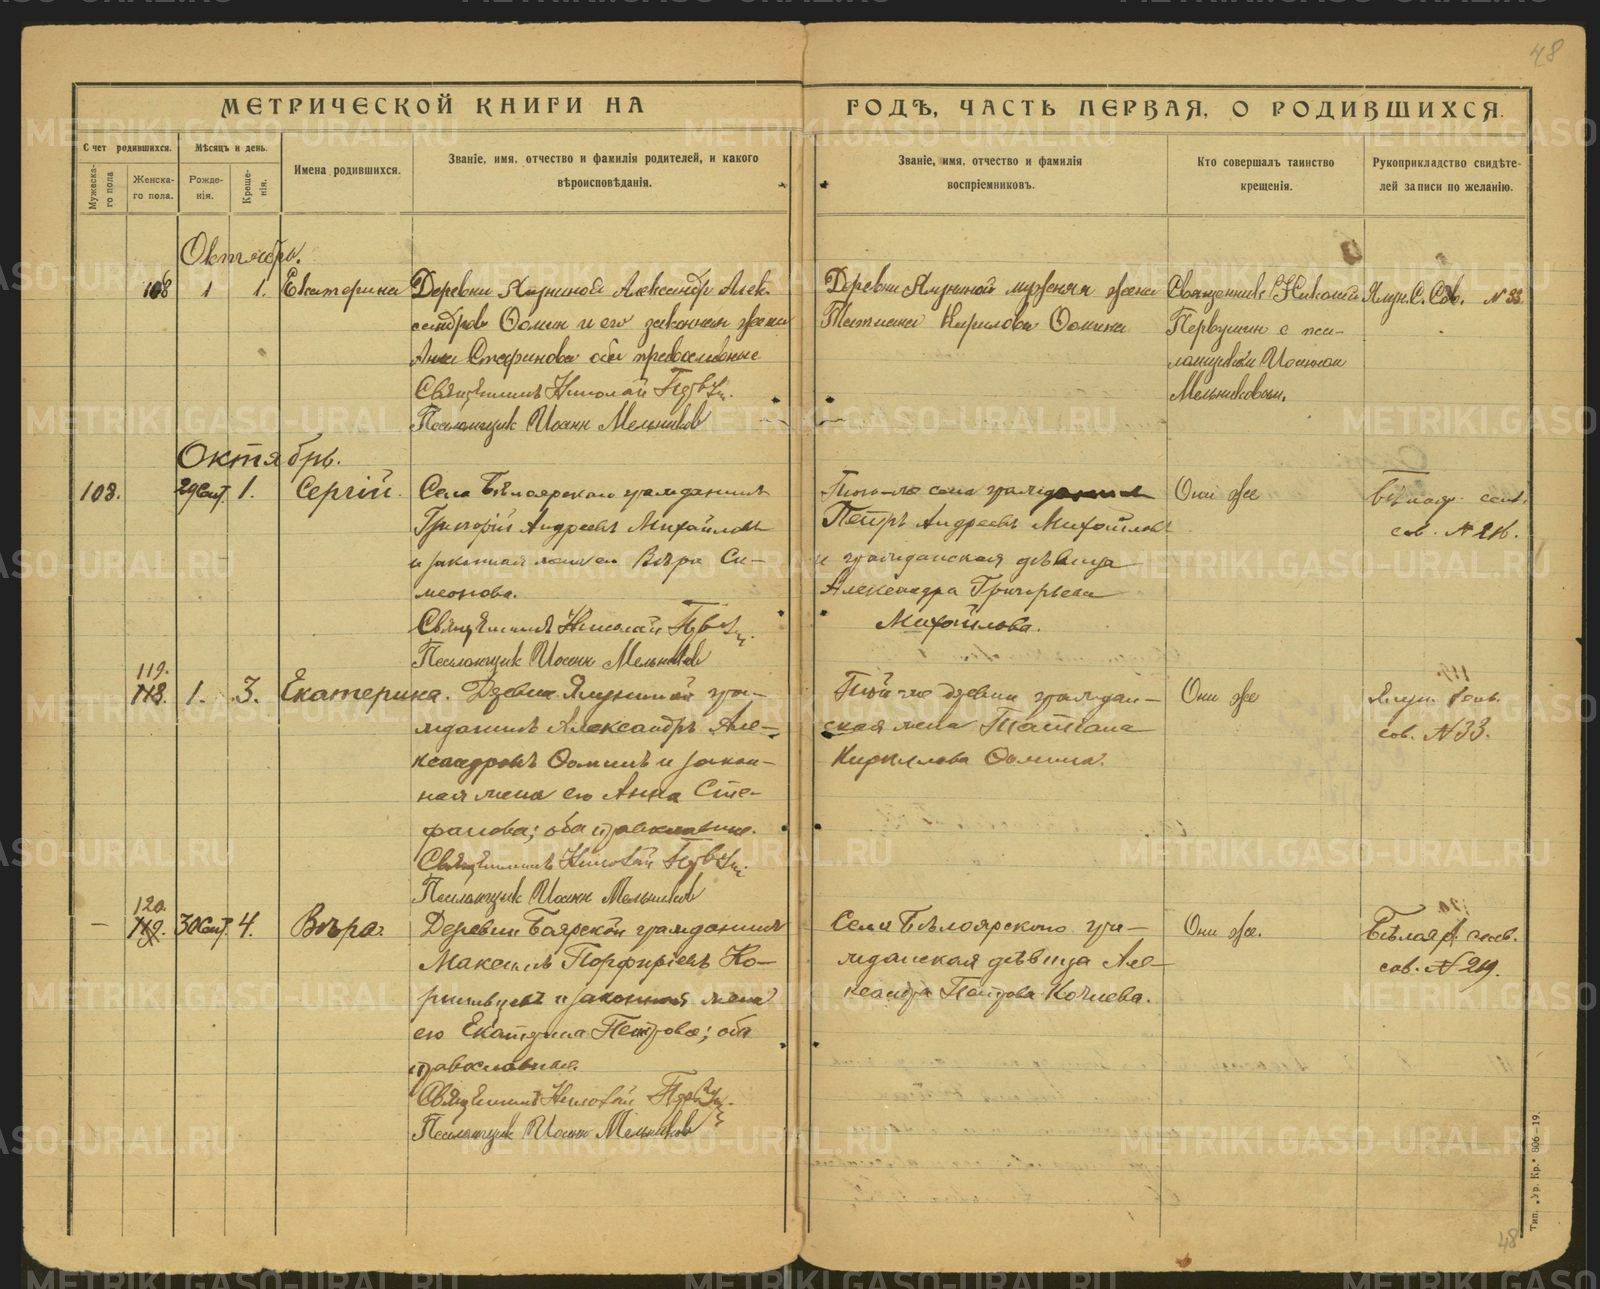 48
МЕТРИЧЕСКОЙ КНИГИ НА ГОДЪ, ЧАСТЬ ПЕРВАЯ, О РОДИВШИХСЯ.
Счет родившихся.
Мужеска-
го пола
Женска-
го пола.
Мѣсяцъ и день.
Рожде-
нія.
Креще-
нія.
Имена родившихся.
Званіе, имя, отчество и фамилія родителей, и какого
вѣроисповѣданія.
Званіе, имя, отчество и фамилія
воспріемниковъ.
Кто совершалъ таинство
крещенія.
Рукоприкладство свидѣте-
лей записи по желанію.
Октябрь.
108 1 1. Екатерина
Деревни Ялуниной Александр Алек-
сандров Оомин и его законная жена
Анна Стефанова оба православные
Священникъ Николай
Псаломщик Иоанн Мельников
Деревни Ялуниной мужняя жена
Татиана Кирилова Оомина
Священник Николай
Первушин с пса-
ломщиком Иоанном
Мельниковым.
Ялун. С. Сов. № 33
Октябрь.
108. 29 Сент. 1. Сергій.
Села Бѣлоярскаго гражданинъ
Григорій Андреевъ Михайловъ
и законная жена его Вѣра Си-
меонова.
Священникъ Николай
Псаломщик Иоанн Мельников
Того-же села гражданинъ
Петръ Андреевъ Михайловъ
и гражданская дѣвица
Александра Григорьева
Михайлова.
Они же
Бѣлояр. сель.
сов. № 216.
119.
118. 1. 3. Екатерина.
Д­евни Ялуниной гра-
жданинъ Александръ Але-
ксандровъ Ооминъ и закон-
ная жена его Анна Сте-
фанова; оба православные.
Священникъ Николай
Псаломщик Иоанн Мельников
Той-же д­евни граждан-
ская жена Татиана
Кириллова Оомина.
Они же
119.
Ялун. сель.
сов. № 33.
120.
— 119. 30 Сент. 4. Вѣра.
Деревни Боярской гражданинъ
Максимъ Порфирьевъ Ко-
и законная жена
его Екатерина Петрова; оба
православные.
Священникъ Николай
Псаломщик Иоанн Мельников
Села Бѣлоярскаго гра-
жданская дѣвица Але-
ксандра Петрова Кочнева.
Они же.
120.
Бѣлояр. сель.
сов. № 219.
Тип. „Ур. Кр." 806—19.
48
METRIKI.GASO-URAL.RU